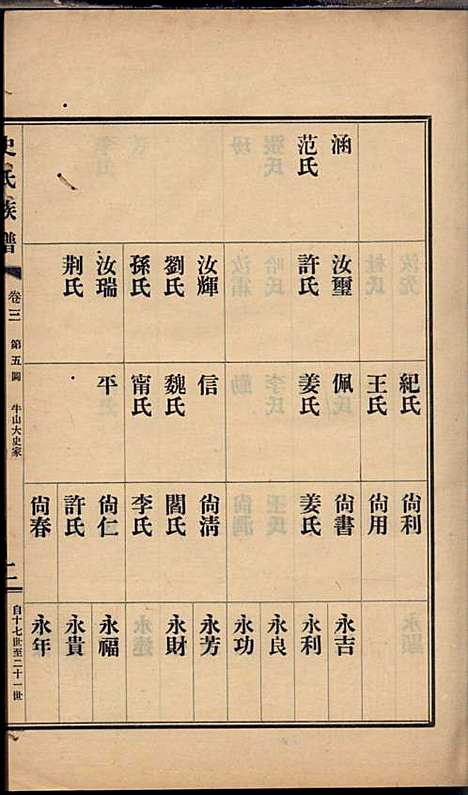 涵
范氏
汝璽
許氏
汝輝
劉氏
孫氏
汝瑞
荆氏
紀氏
王氏
佩
姜氏
信
魏氏
甯氏
平
尙利
尙用
尙書
姜氏
尙清
閻氏
李氏
尙仁
許氏
尙春
永吉
永利
永良
永功
永芳
永財
永福
永貴
永年
史氏族譜
卷三
第五圖
牛山大史家
自十七世至二十一世